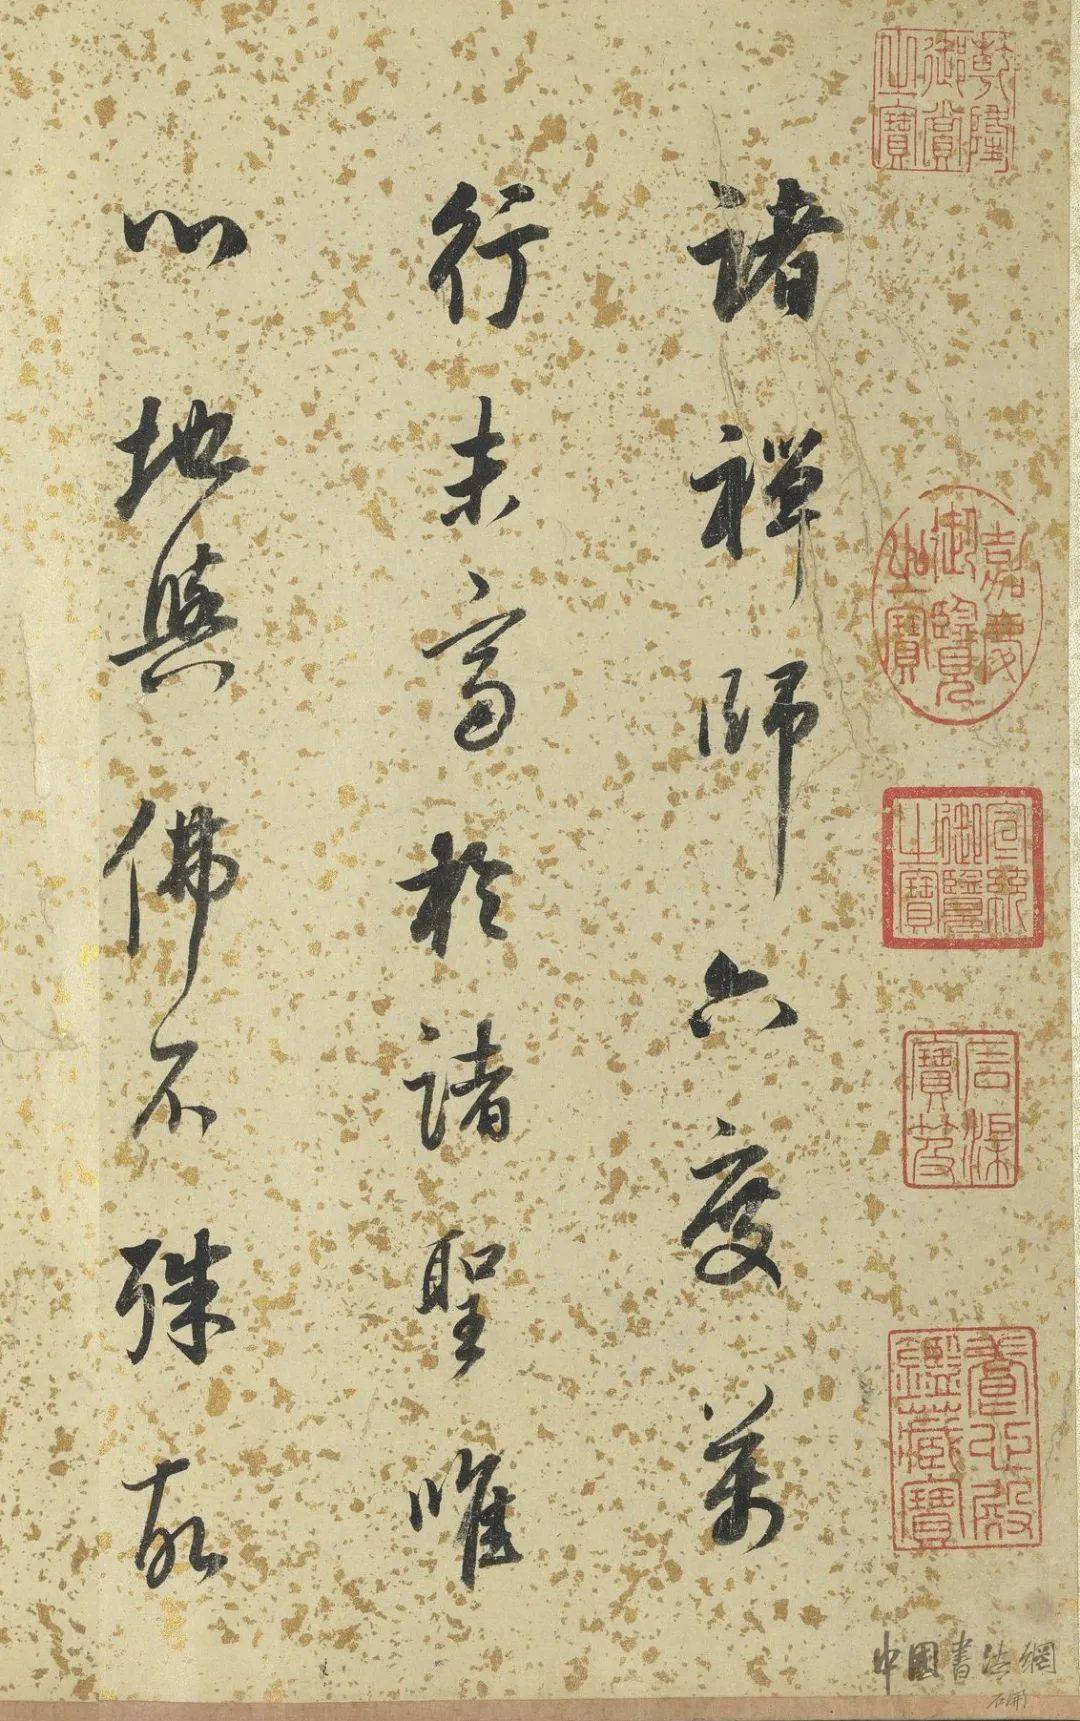 乾隆御賞之寶
嘉慶御覽之寶
宣統御覽之寶
石渠寶笈
養心殿鑑藏寶
諸禪師六度萬
行未高於諸聖唯
心地與佛不殊故
中國書法網
石開